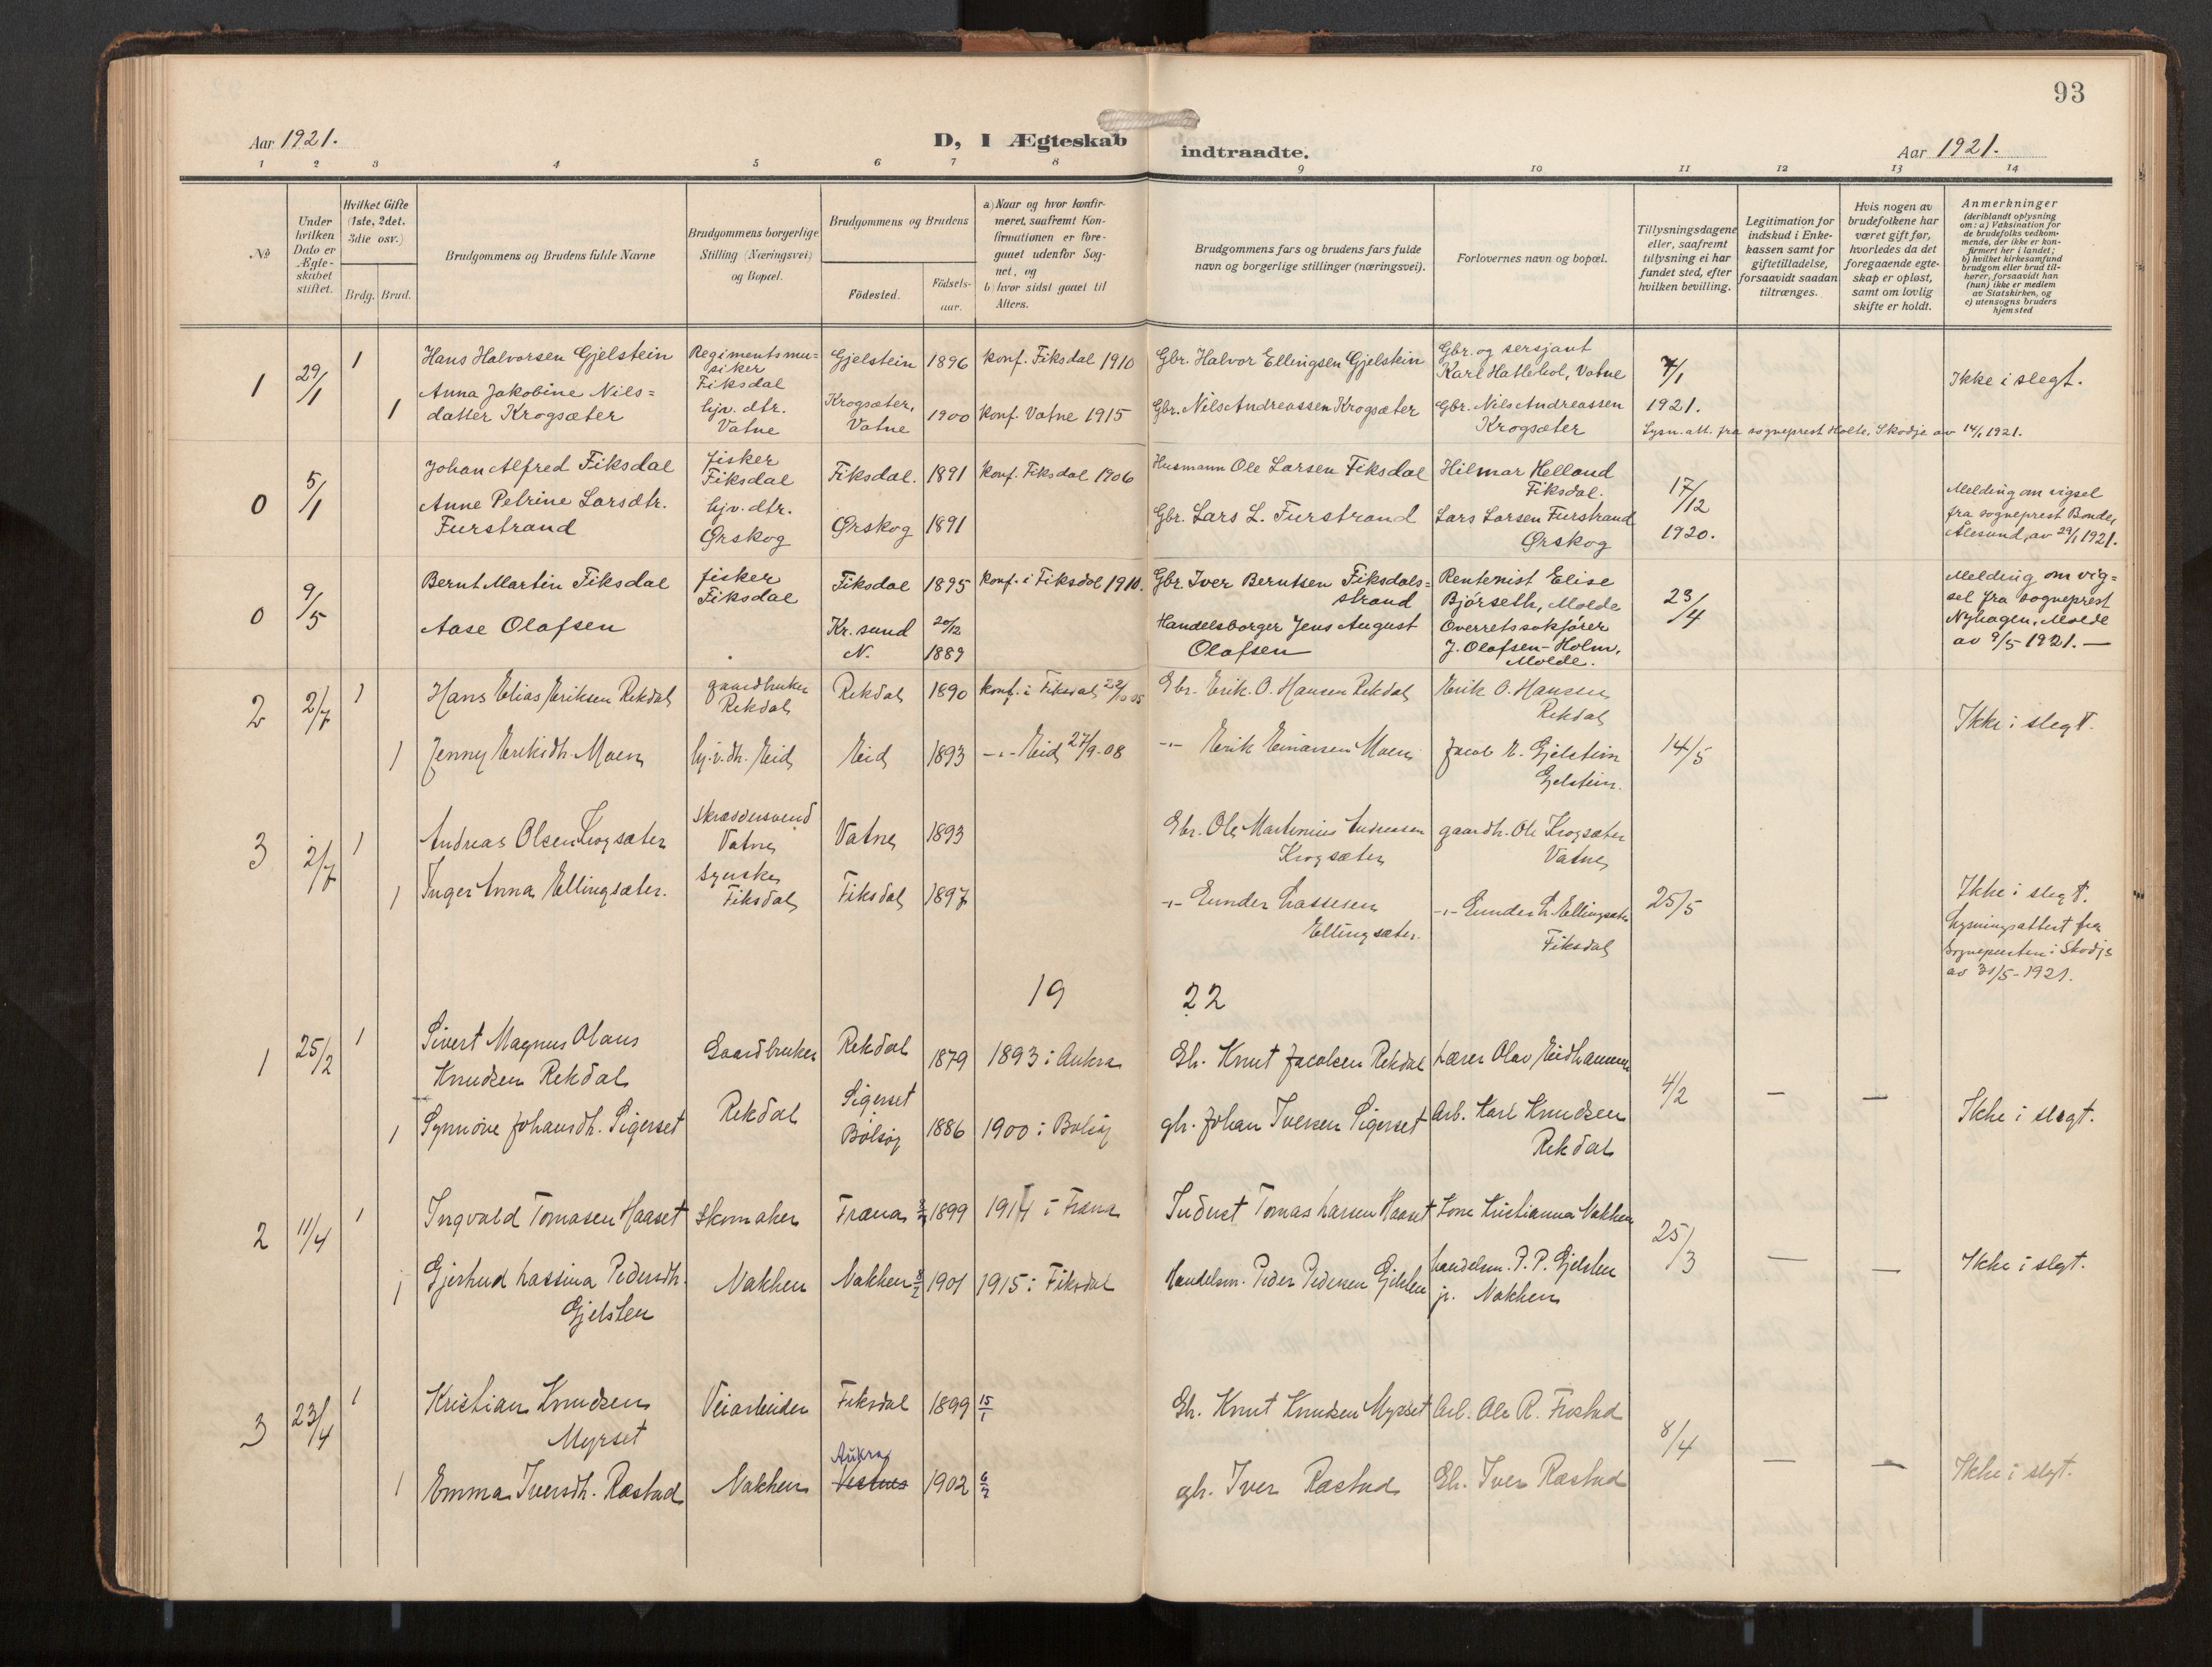 93
Aar 1921.
D, I Ægteskab indtraadte.
Aar 1921.
1 2 3 4 5 6 7 8 9 10 11 12 13 14
No
Under hvilken Dato er Ægteskabet stiftet.
Hvilket Gifte (1ste, 2det, 3die osv.)
Brdg. Brud.
Brudgommens og Brudens fulde Navne
Brudgommens borgerlige Stilling (Næringsvei) og Bopæl.
Brudgommens og Brudens
Fødested.
Fødsels-aar.
a) Naar og hvor konfirmeret, saafremt Konfirmationen er foregaaet udenfor Sognet, og
b) hvor sidst gaaet til Alters.
Brudgommens fars og brudens fars fulde navn og borgerlige stillinger (næringsvei).
Forlovernes navn og bopæl.
Tillysningsdagene eller, saafremt tillysning ei har fundet sted, efter hvilken bevilling.
Legitimation for indskud i Enkekassen samt for giftetilladelse, forsaavidt saadan tiltrænges.
Hvis nogen av brudefolkene har været gift før, hvorledes da det foregaaende egteskap er opløst, samt om lovlig skifte er holdt.
Anmerkninger (deriblandt oplysning om: a) Vaksination for de brudefolks vedkommende, der ikke er konfirmert her i landet; b) hvilket kirkesamfund brudgom eller brud tilhører, forsaavidt han (hun) ikke er medlem av Statskirken, og c) utensogns bruders hjemsted
1 29/1 1 Hans Halvorsen Gjelstein Regimentsmusiker Fiksdal Gjelstein 1896 konf. Fiksdal 1910 Gbr. Halvor Ellingsen Gjelstein Gbr. og sersjant Karl Hatlehol, Vatne 7/1 Ikke i slegt.
1 Anna Jakobine Nilsdatter Krogsæter hjv. dtr. Vatne Krogsæter, Vatne 1900 konf Vatne 1915 Gbr. Nils Andreassen Krogsæter Gbr. Nils Andreassen Krogsæter 1921.
Lysn. att. fra sogneprest Holte, Skodje av 14/1 1921.
0 5/1 Johan Alfred Fiksdal fisker Fiksdal Fiksdal. 1891 konf. Fiksdal 1906 Husmann Ole Larsen Fiksdal Hilmar Helland Fiksdal. 17/12 1920.
Anne Petrine Larsdtr. Furstrand hjv. dtr. Ørskog Ørskog 1891 Gbr. Lars L. Furstrand Lars Larsen Furstrand Ørskog Melding om vigsel fra sogneprest Bonde, Ålesund, av 29/1 1921.
0 9/5 Bernt Martin Fiksdal fisker Fiksdal Fiksdal 1895 konf. i Fiksdal 1910. Gbr. Iver Berntsen Fiksdalsstrand Rentenist Elise Bjørseth, Molde 23/4
Aase Olafsen Kr. sund N. 20/12 1889 Handelsborger Jens August Olafsen Overretssakfører J. Olafsen-Holm, Molde. Melding om vigsel fra sogneprest Nyhagen, Molde av 9/5 1921. —
2 2/7 1 Hans Elias Eriksen Rekdal gaardbruker Rekdal Rekdal 1890 konf. i Fiksdal Gbr. Erik. O. Hansen Rekdal Erik O. Hansen Rekdal Ikke i slegt.
1 Jenny Eriksdtr. Moen hj.v.dtr. Eid Eid 1893 -"- Eid 27/9-08 -"- Erik Einarsen Moen Jacob E. Gjelstein Gjelstein. 14/5
3 2/7 1 Andreas Olsen Krogsæter skræddersvend Vatne Vatne 1893 Gbr. Ole Martinius Andreasen Krogsæter gaardb. Ole Krogsæter Vatne
1 Inger Anna Ellingsæter. syerske Fiksdal Fiksdal 1897 -"- Gunder Lassesen Ellingsæter. -"- Gunder L. Ellingsæter Fiksdal 25/5 Ikke i slegt. Lysningsattest fra sognepresten i Skodje av 31/5-1921.
19 22
1 25/2 1 Sivert Magnus Olaus Knudsen Rekdal Gaardbruker Rekdal 1879 1893 i Aukra Gb. Knut Jacobsen Rekdal Lærer Olav Eidhammer 4/2
1 Synnøve Johansdtr. Sigerset Rekdal Sigerset Bolsøy 1886 1900 i Bolsøy gb. Johan Iversen Sigerset Arb. Karl Knudsen Rekdal — — Ikke i slegt.
2 11/4 1 Ingvald Tomasen Haaset skomaker Fræna 1899 1914 i Fræna Inderst Tomas Larsen Haaset Kone Kristianna Nakken 25/3
1 Gjerhud Lassina Pedersdtr. Gjelsten Nakken Nakken 8/2 1901 1915 i Fiksdal Handelsm. Peder Pedersen Gjelsten handelsm. P. P. Gjelsten jr. Nakken — — Ikke i slegt.
3 23/4 1 Kristian Knudsen Myrset Veiarbeider Fiksdal 1899 15/1 Gb. Knut Knudsen Myrset Arb. Ole R. Frostad 8/4
1 Emma Iversdtr. Rastad Nakken Aukra Vestnes 1902 6/7 gb. Iver Rastad Gb. Iver Rastad — — Ikke i slegt.